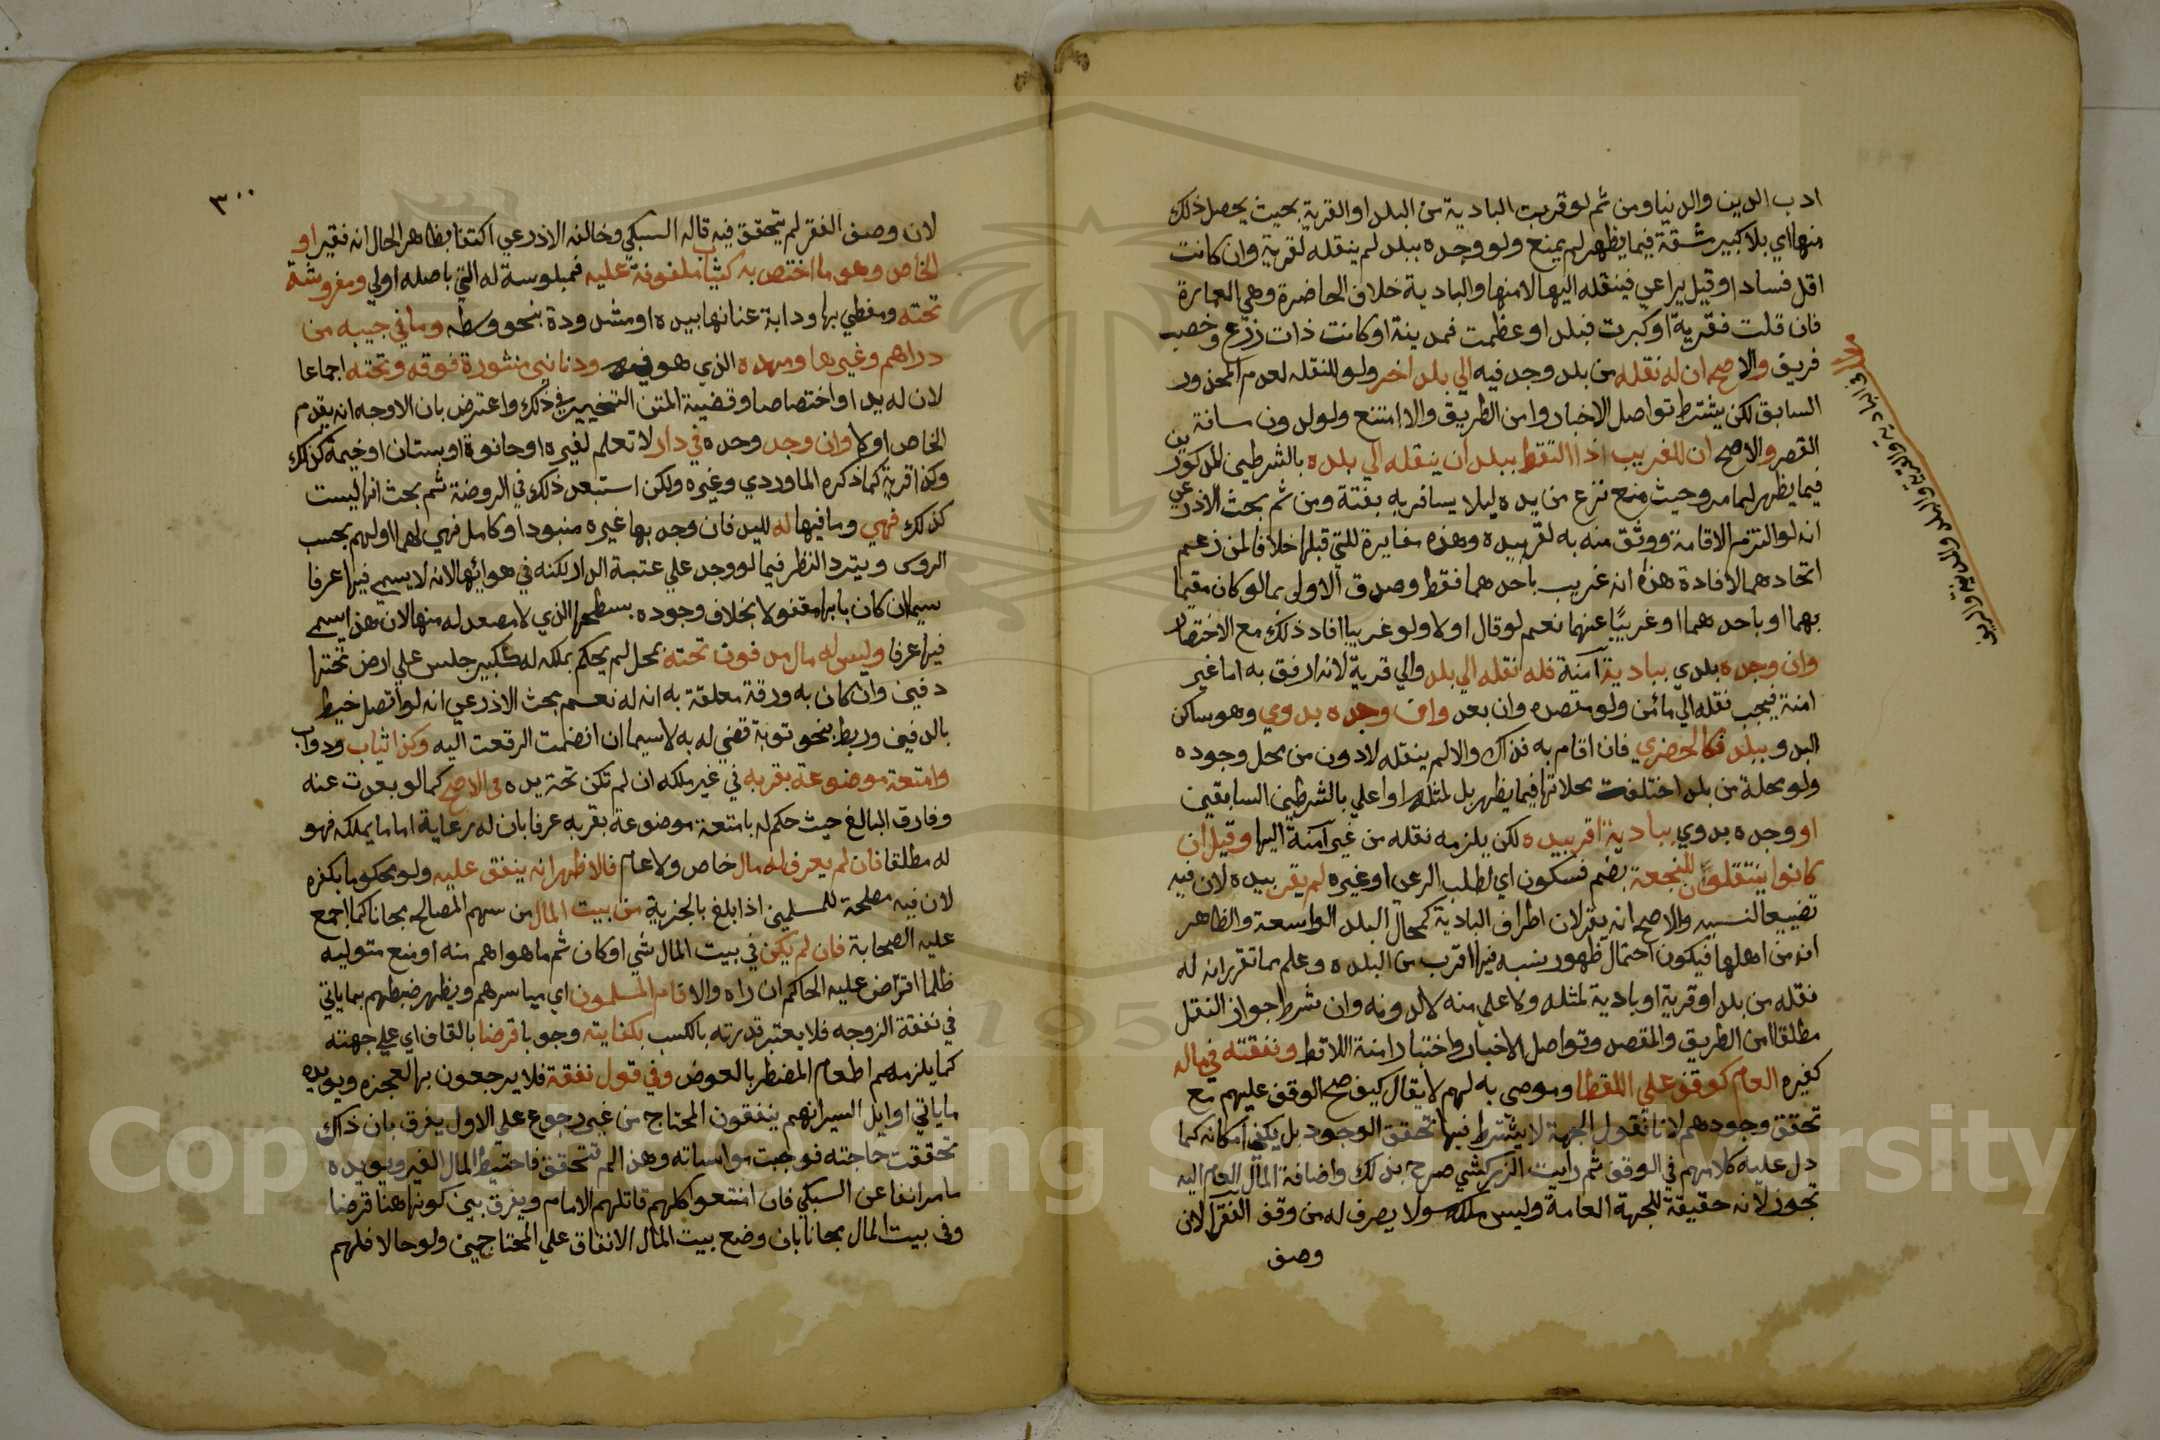 ادب الدين والدنيا ومن ثم لو قربت البادية من البلد او القرية بحيث يحصل ذلك
منها اي بلا كبير مشقة فيما يظهر لم يمنع ولو وجده ببلد لم ينقله لقرية وان كانت
اقل فسادا وقيل يراعي فينقله اليها لا منها والبادية خلاف الحاضرة وهي العمارة
فان قلت فقرية او كبرت فبلد او عظمت فمدينة او كانت ذات زرع وخصب
فريف والاصح ان له نقله من بلد وجد فيه الي بلد اخر ولو للنقله لعدم المحذور
السابق لكن يشترط تواصل الاخبار وامن الطريق والا امتنع ولو لدون مسافة
القصر والاصح ان للغريب اذا التقط ببلد ان ينقله الي بلده بالشرطين المذكورين
فيما يظهر لما مر وحيث منع نزع من يده ليلا يسافر به بغتة ومن ثم بحث الاذرعي
انه لو التزم الاقامة ووثق منه به لقر بيده وهذه مغايرة للتي قبلها خلافا لمن زعم
اتحادهما لافادة هذه انه غريب باحدهما فقط وصدق الاولى بما لو كان مقيما
بهما او باحدهما او غريبا عنهما نعم لو قال اولا ولو غريبا افاد ذلك مع الاختصار
وان وجده بلدي ببادية آمنة فله نقله الي بلد والي قرية لانه ارفق به اما غير
امنة فيجب نقله الي مأمن ولو مقصده وان بعد وان وجده بدوي وهو ساكن
البدو ببلد فكالحضري فان اقام به فذاك والا لم ينقله لادون من محل وجوده
ولو محلة من بلد اختلفت محلاتها فيما يظهر بل لمثله او اعلي بالشرطين السابقين
او وجده بدوي ببادية اقر بيده لكن يلزمه نقله من غير آمنة اليها وقيل ان
كانوا ينتقلون للنجعة بضم فسكون اي لطلب الرعي او غيره لم يقر بيده لان فيه
تضييعا لنسبه والاصح انه يقر لان اطراف البادية كمحال البلد الواسعة والظاهر
انه من اهلها فيكون احتمال ظهور نسبه فيها اقرب من البلده وعلم مما تقرر انه له
نقله من بلد او قرية او بادية لمثله ولاعلى منه لا لدونه وان شرط جواز النقل
مطلقا امن الطريق والمقصد وتواصل الاخبار واختبار امنة اللاقط ونفقته في ماله
كغيره العام كوقف علي اللقطا وموصى به لهم لا يقال كيف صح الوقف عليهم مع
تحقق وجودهم لانا نقول الجهة لا يشترط فيها تحقق الوجود بل يكفي امكانه كما
دل عليه كلامهم في الوقف ثم رايت الزركشي صرح بذلك واضافة المال العام اليه
تجوز لانه حقيقة للجهة العامة وليس ملكه ولا يصرف له من وقف الفقرا لان
وصف
في البادية والقرية والبلد والمدينة والريف
٣٠٠
لان وصف الفقر لم يتحقق فيه قاله السبكي وخالفه الاذرعي اكتفا بظاهر الحال انه فقير او
الخاص وهو ما اختص به كثياب ملفوفة عليه فملبوسة له التي باصله اولي ومفروشة
تحته ومغطي بها ودابة عنانها بيده او مشدودة بنحو وسطه وما في جيبه من
دراهم وغيرها ومهده الذي هو فيه ودنانير منثورة فوقه وتحته اجماعا
لان له يدا واختصاصا وقضية المتن التخيير في ذلك واعترض بان الاوجه انه يقدم
الخاص اولا وان وجد وحده في دار لا تعلم لغيره او حانوة او بستان او خيمة كذلك
وكذا قرية كما ذكره الماوردي وغيره ولكن استبعد ذلك في الروضة ثم بحث انها ليست
كذلك فهي وما فيها له لليد فان وجد بها غيره منبودا او كامل فهي لهما او لهم بحسب
الروس ويتردد النظر فيما لو وجد علي عتبة الدار لكنه في هوائها لانه لا يسمي فيها عرفا
سيما ان كان بابها مقفولا بخلاف وجوده بسطحها الذي لا مصعد له منها لان هذا يسمي
فيها عرفا وليس له مال مدفون تحته بمحل لم يحكم بملكه له ككبير جلس علي ارض تحتها
دفين وان كان به ورقة معلقة به انه له نعم بحث الاذرعي انه لو اتصل خيط
بالدفين وربط بنحو ثوبه قضي له به لا سيما ان انضمت الرقعة اليه وكذا ثياب ودواب
وامتعة موضوعة بقربه في غير ملكه ان لم تكن تحت يده في الاصح كما لو بعدت عنه
وفارق البالغ حيث حكم له بامتعة موضوعة بقربه عرفا بان له رعاية اما ما يملكه فهو
له مطلقا فان لم يعرف له مال خاص ولا عام فالاظهر انه ينفق عليه ولو محكوما بكفره
لان فيه مصلحة للمسلمين اذا بلغ بالجزية من بيت المال من سهم المصالح مجانا كما اجمع
عليه الصحابة فان لم يكن في بيت المال شي او كان ثم ما هو اهم منه او منع متوليه
ظلما اقترض عليه الحاكم ان راه والا قام المسلمون اي مياسرهم ويظهر ضبطهم بما ياتي
في نفقة الزوجه فلا يعتبر قدرته بالكسب بكفايته وجوبا قرضا بالقاف اي علي جهته
كما يلزمهم اطعام المضطر بالعوض وفي قول نفقة فلا يرجعون بها لعجزه ويويده
ما ياتي اوايل السير انهم ينفقون المحتاج من غير رجوع على الاول يفرق بان ذاك
تحققت حاجته فوجبت مواساته وهذا لم تتحقق فاحتيط لمال الغير ويويده
ما مر انفا عن السبكي فان امتنعوا كلهم قاتلهم الامام ويفرق بين كونها هنا قرضا
وفي بيت المال مجانا بان وضع بيت المال الانفاق علي المحتاجين ولو حالا فلهم
Copyright © King Saud University
195